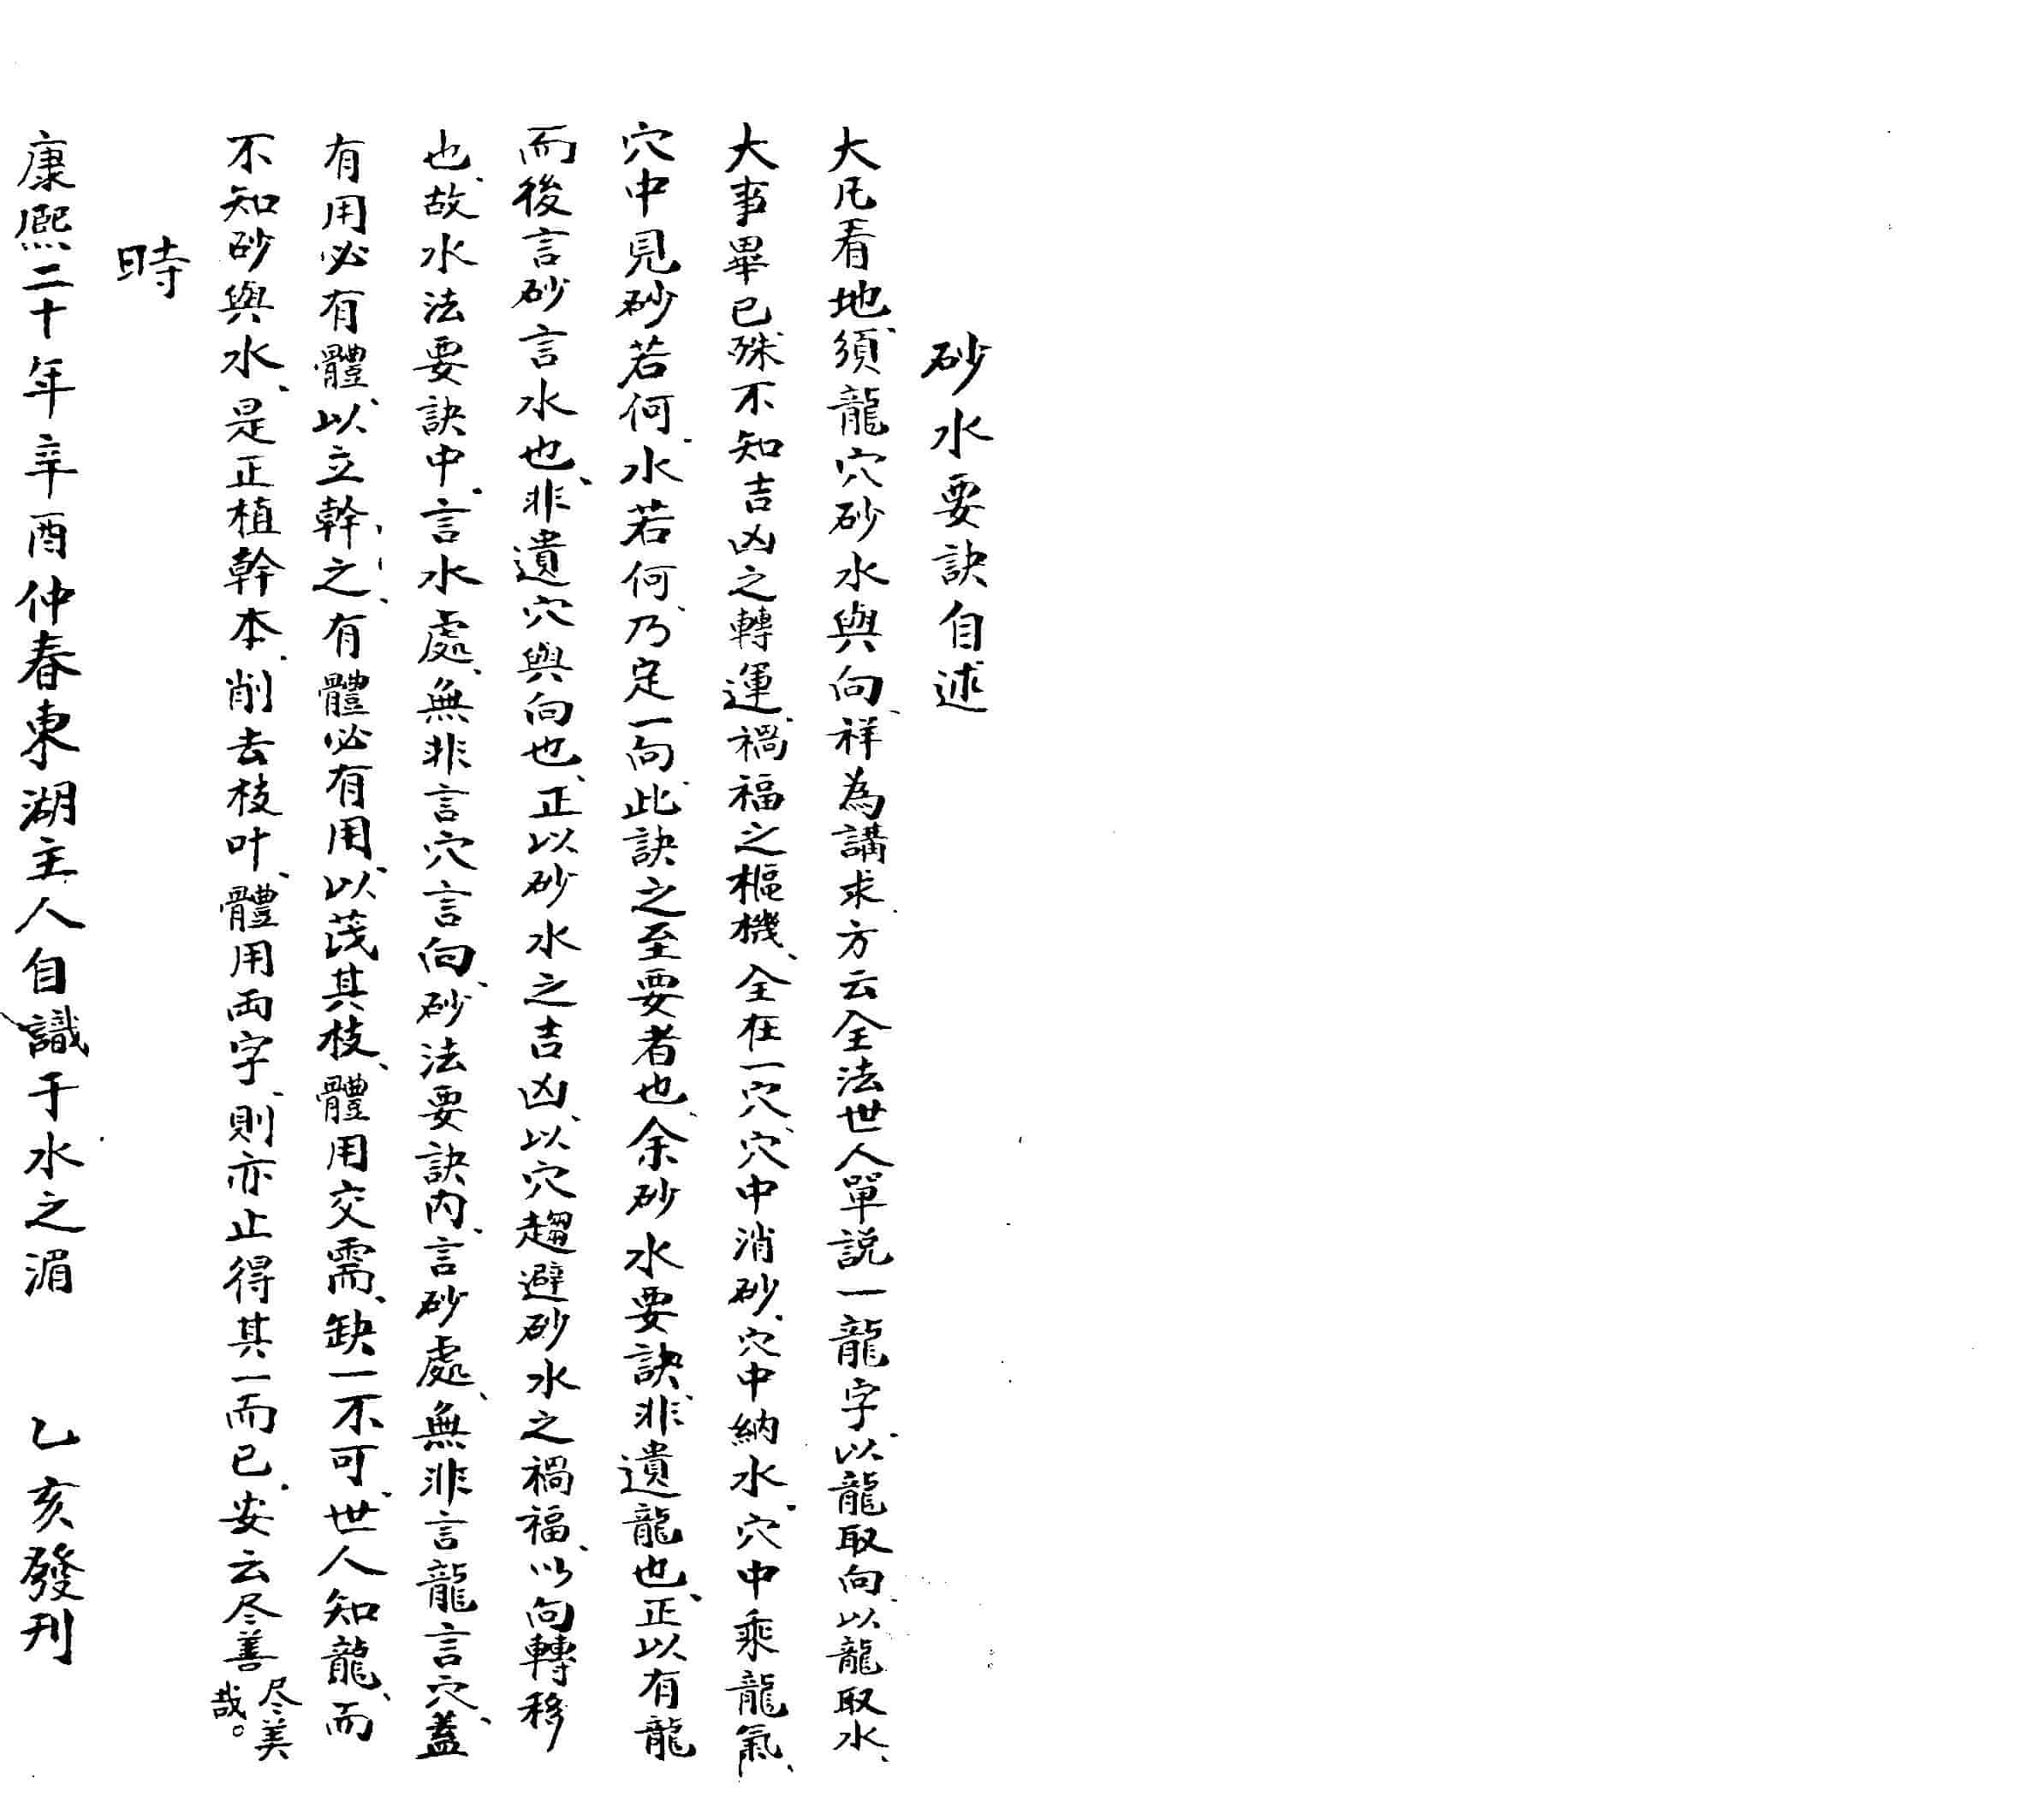 砂水要訣自述
大凡看地、須龍穴砂水與向、祥為講求、方云全法世人單説一龍字、以龍取向、以龍取水、
大事畢已、殊不知吉凶之轉運、禍福之樞機、全在一穴、穴中消砂、穴中納水、穴中乘龍氣、
穴中見砂若何、水若何、乃定一向、此訣之至要者也、余砂水要訣、非遺龍也、正以有龍
而後言砂言水也、非遺穴與向也、正以砂水之吉凶、以穴趨避砂水之禍福、以向轉移
也、故水法要訣中、言水處、無非言穴言向、砂法要訣内、言砂處、無非言龍言穴、蓋
有用必有體、以立幹、之、有體必有用、以茂其枝、體用交需、缺一不可、世人知龍、而
不知砂與水、是正植幹本、削去枝叶、體用両字、則亦止得其一而已、安云尽善尽美哉。
時
康熙二十年辛酉仲春東湖主人自識于水之湄 乙亥發刊